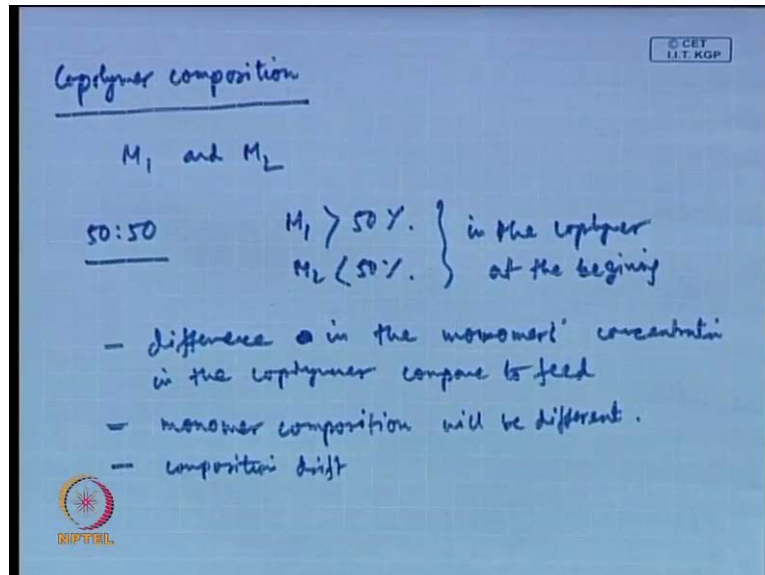 © CET
I.I.T. KGP
Copolymer composition
M1 and M2
50:50 M1 > 50 %. } in the copolymer
M2 < 50 %. } at the begining
- difference in the momomers' concentratin
in the copolymer compare to feed
- monomer composition will be different.
- composition drift
NPTEL